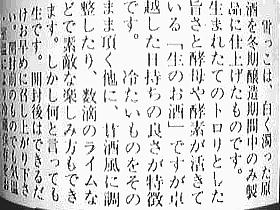 雪っこは白く濁った原
酒を冬期醸造期間中のみ製
品に仕上げたものです。
生まれたてのトロリとした
旨さと酵母や酵素が活きて
いる「生のお酒」ですが卓
越した日持ちの良さが特徴
です。 冷たいものをその
まま頂く他に、甘酒風に調
整したり、数滴のライムな
どで素敵な楽しみ方もでき
ます。しかし何と言っても
生です。開封後はできるだ
けお早めに召し上がり下さ